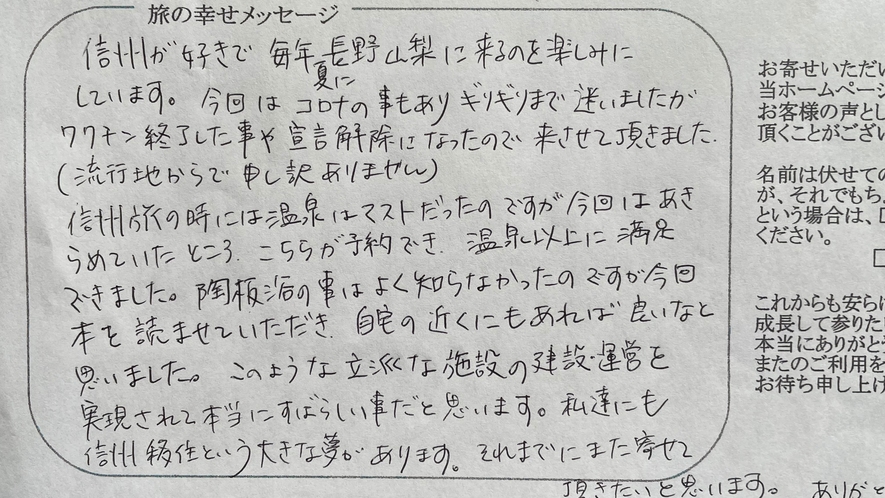 旅の幸せメッセージ
信州が好きで 毎年夏に長野山梨に来るのを楽しみに
しています。今回はコロナの事もありギリギリまで迷いましたが
ワクチン終了した事や宣言解除になったので来させて頂きました.
(流行地からで申し訳ありません)
信州旅の時には温泉はマストだったのですが今回はあき
らめていたところ.こちらが予約でき.温泉以上に満足
できました。陶板浴の事はよく知らなかったのですが今回
本を読ませていただき.自宅の近くにもあれば良いなと
思いました。このような立派な施設の建設・運営を
実現されて本当にすばらしい事だと思います。私達にも
信州移住という大きな夢があります。それまでにまた寄せて
頂きたいと思います。ありがと
お寄せいただい
当ホームページ
お客様の声とし
頂くことがござい
名前は伏せての
が、それでもち
という場合は、
ください。
これからも安らげ
成長して参りた
本当にありがと
またのご利用を
お待ち申し上げ